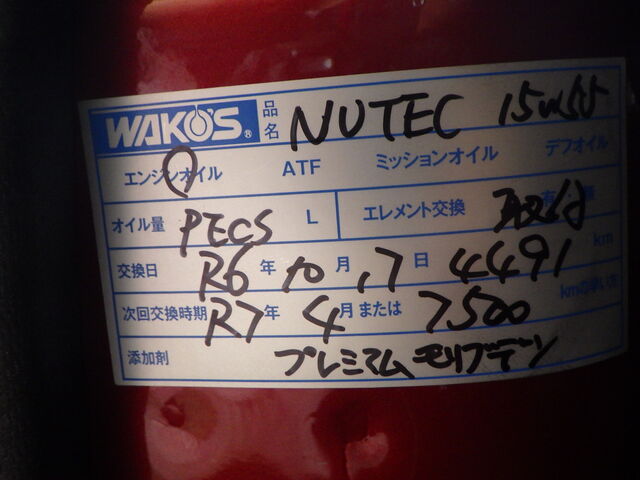 WAKO'S® 品名 NUTEC 15w55
エンジンオイル ATF ミッションオイル デフオイル
オイル量 PECS L エレメント交換
交換日 R6年 10月 17日 4491 km
次回交換時期 R7年 4月または 7500 kmの早い方
添加剤 プレミアム モリブデン